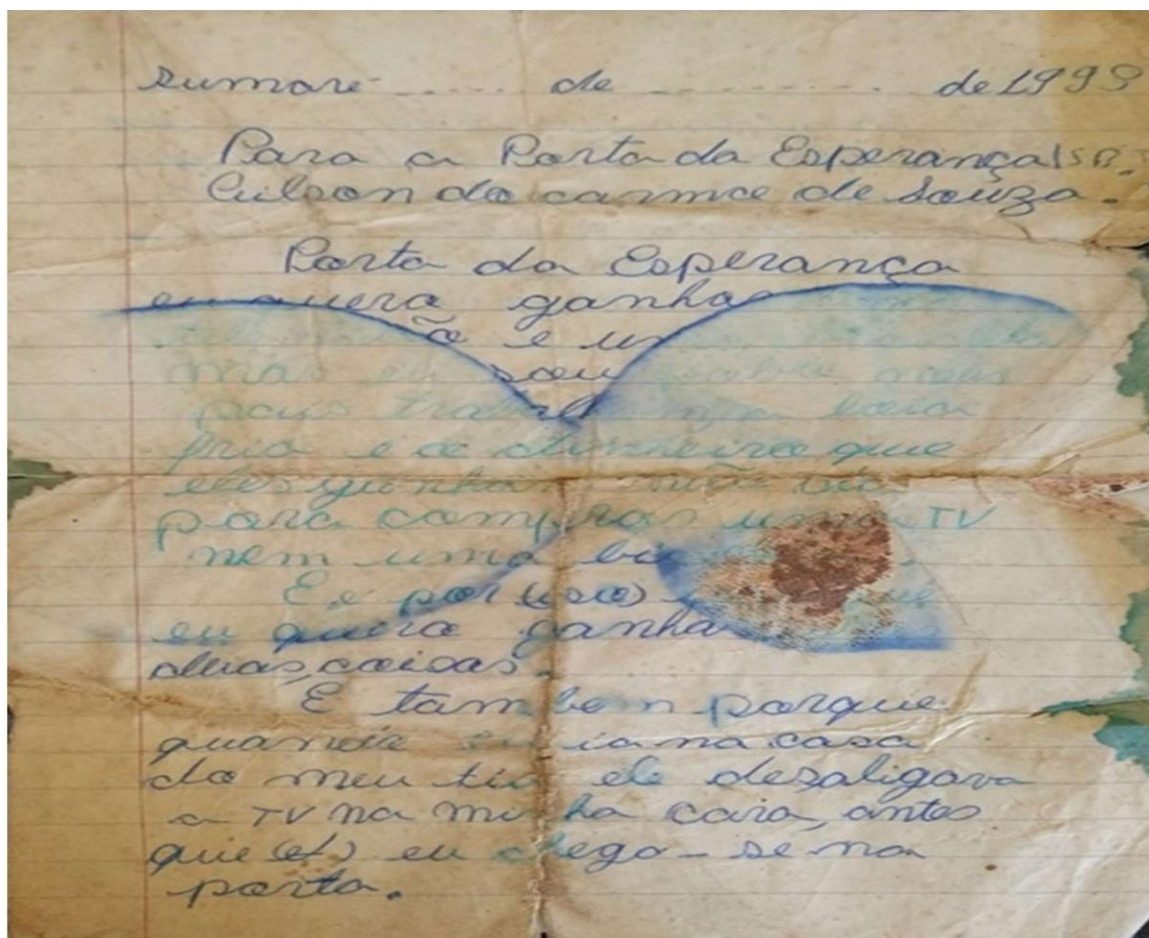 Sumaré ..... de ........... de 199
Para a Porta da Esperança SR.
Gilson do carmo de Souza.
Porta da Esperança
eu quero ganhar
e
mas eu sou pobre meus
pais trabalham boia
fria e o dinheiro que
eles ganham não dá
para comprar uma TV
nem uma
E e por (uso) que
eu quero ganha
duas coisas.
E tambem porque
quando eu ia na casa
do meu tio ele desaligava
a TV na minha cara, antes
que (el) eu chega-se na
porta.